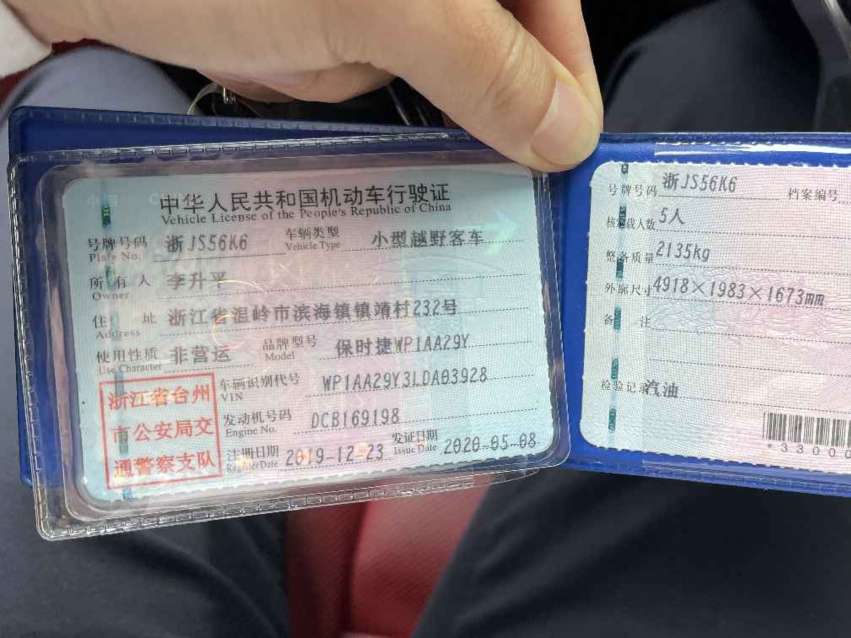 中华人民共和国机动车行驶证
Vehicle License of the People's Republic of China
号牌号码 浙JS56K6 车辆类型 小型越野客车
Plate No. Vehicle Type
所有人 李升平
Owner
住址 浙江省温岭市滨海镇镇靖村232号
Address
使用性质 非营运 品牌型号 保时捷WP1AA29Y
Use Character Model
浙江省台州
市公安局交
通警察支队
车辆识别代号 WP1AA29Y3LDA03928
VIN
发动机号码 DCB169198
Engine No.
注册日期 2019-12-23 发证日期 2020-05-08
Register Date Issue Date
号牌号码 浙JS56K6 档案编号
核定载人数 5人
整备质量 2135kg
外廓尺寸 4918×1983×1673mm
备注
检验记录 汽油
*33000